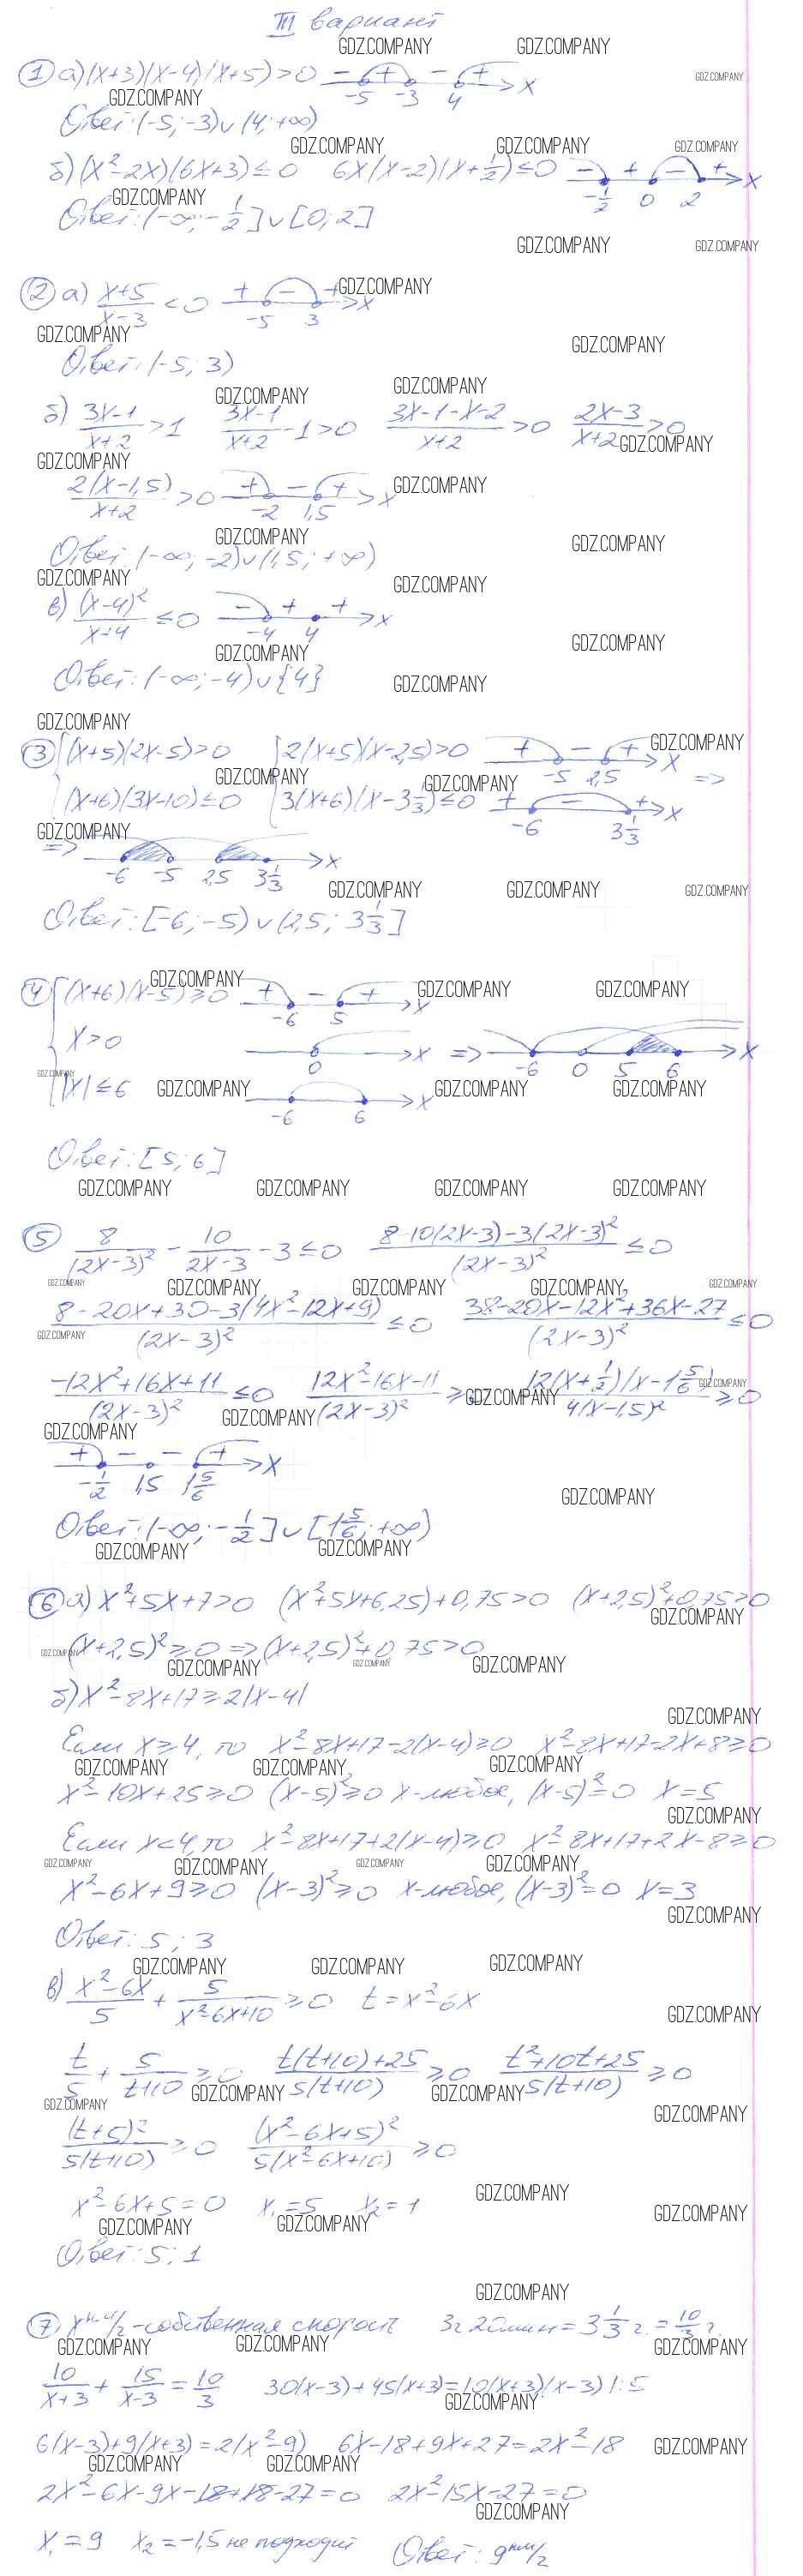 III вариант
GDZ.COMPANY GDZ.COMPANY
① а) (x+3)(x-4)(x+5)>0 - + - + x GDZ.COMPANY
-5 -3 4
GDZ.COMPANY
Ответ: (-5; -3)∪(4; +∞)
GDZ.COMPANY GDZ.COMPANY GDZ.COMPANY
б) (x²-2x)(6x+3)≤0 6x(x-2)(x+1/2)≤0 - + - + x
-1/2 0 2
GDZ.COMPANY
Ответ: (-∞; -1/2]∪[0; 2]
GDZ.COMPANY GDZ.COMPANY
② а) (x+5)/(x-3) < 0 + - + x GDZ.COMPANY
-5 3
GDZ.COMPANY GDZ.COMPANY
Ответ: (-5; 3)
GDZ.COMPANY GDZ.COMPANY
б) (3x-1)/(x+2) > 1 (3x-1)/(x+2) - 1 > 0 (3x-1-x-2)/(x+2) > 0 (2x-3)/(x+2) > 0
GDZ.COMPANY GDZ.COMPANY
2(x-1,5)/(x+2) > 0 + - + x GDZ.COMPANY
-2 1,5
GDZ.COMPANY GDZ.COMPANY
Ответ: (-∞; -2)∪(1,5; +∞)
GDZ.COMPANY GDZ.COMPANY
в) (x-4)²/(x+4) ≤ 0 - + + x
-4 4
GDZ.COMPANY GDZ.COMPANY
Ответ: (-∞; -4)∪{4} GDZ.COMPANY
GDZ.COMPANY
③ { (x+5)(2x-5)>0 { 2(x+5)(x-2,5)>0 + - + x GDZ.COMPANY
-5 2,5 =>
GDZ.COMPANY GDZ.COMPANY
(x+6)(3x-10)≤0 3(x+6)(x-3 1/3)≤0 + - + x
-6 3 1/3
GDZ.COMPANY
=> x
-6 -5 2,5 3 1/3
GDZ.COMPANY GDZ.COMPANY GDZ.COMPANY
Ответ: [-6; -5)∪(2,5; 3 1/3]
GDZ.COMPANY
④ { (x+6)(x-5)≥0 + - + x GDZ.COMPANY GDZ.COMPANY
-6 5
x>0 x => x
0 -6 0 5 6
GDZ.COMPANY
|x|≤6 GDZ.COMPANY x GDZ.COMPANY GDZ.COMPANY
-6 6
Ответ: [5; 6]
GDZ.COMPANY GDZ.COMPANY GDZ.COMPANY GDZ.COMPANY
⑤ 8/(2x-3)² - 10/(2x-3) - 3 ≤ 0 (8-10(2x-3)-3(2x-3)²)/(2x-3)² ≤ 0
GDZ.COMPANY GDZ.COMPANY GDZ.COMPANY GDZ.COMPANY GDZ.COMPANY
(8-20x+30-3(4x²-12x+9))/(2x-3)² ≤ 0 (38-20x-12x²+36x-27)/(2x-3)² ≤ 0
GDZ.COMPANY
(-12x²+16x+11)/(2x-3)² ≤ 0 (12x²-16x-11)/(2x-3)² ≥ 12(x+1/2)(x-1 5/6)/4(x-1,5)² ≥ 0
GDZ.COMPANY GDZ.COMPANY GDZ.COMPANY
GDZ.COMPANY
+ - - + x
-1/2 1,5 1 5/6
GDZ.COMPANY
Ответ: (-∞; -1/2]∪[1 5/6; +∞)
GDZ.COMPANY GDZ.COMPANY
⑥ а) x²+5x+7>0 (x²+5x+6,25)+0,75>0 (x+2,5)²+0,75>0
GDZ.COMPANY
(x+2,5)²≥0 => (x+2,5)²+0,75>0
GDZ.COMPANY GDZ.COMPANY GDZ.COMPANY GDZ.COMPANY
б) x²-8x+17≥2|x-4|
GDZ.COMPANY
Если x≥4, то x²-8x+17-2(x-4)≥0 x²-8x+17-2x+8≥0
GDZ.COMPANY GDZ.COMPANY GDZ.COMPANY
x²-10x+25≥0 (x-5)²≥0 x-любое, (x-5)²=0 x=5
GDZ.COMPANY
Если x<4, то x²-8x+17+2(x-4)≥0 x²-8x+17+2x-8≥0
GDZ.COMPANY GDZ.COMPANY GDZ.COMPANY GDZ.COMPANY
x²-6x+9≥0 (x-3)²≥0 x-любое, (x-3)²=0 x=3
GDZ.COMPANY
Ответ: 5; 3
GDZ.COMPANY GDZ.COMPANY GDZ.COMPANY
в) (x²-6x)/5 + 5/(x²-6x+10) ≥ 0 t=x²-6x
GDZ.COMPANY
t/5 + 5/(t+10) ≥ 0 (t(t+10)+25)/5(t+10) ≥ 0 (t²+10t+25)/5(t+10) ≥ 0
GDZ.COMPANY GDZ.COMPANY GDZ.COMPANY
GDZ.COMPANY
(t+5)²/5(t+10) ≥ 0 (x²-6x+5)²/5(x²-6x+10) ≥ 0
GDZ.COMPANY
x²-6x+5=0 x₁=5 x₂=1
GDZ.COMPANY GDZ.COMPANY GDZ.COMPANY
Ответ: 5; 1
GDZ.COMPANY
⑦ x км/ч-собственная скорость 3ч 20мин = 3 1/3 ч. = 10/3 ч.
GDZ.COMPANY GDZ.COMPANY GDZ.COMPANY
10/(x+3) + 15/(x-3) = 10/3 30(x-3)+45(x+3)=10(x+3)(x-3) |:5
GDZ.COMPANY
6(x-3)+9(x+3)=2(x²-9) 6x-18+9x+27=2x²-18
GDZ.COMPANY GDZ.COMPANY GDZ.COMPANY
2x²-6x-9x-18+18-27=0 2x²-15x-27=0
GDZ.COMPANY
x₁=9 x₂=-1,5 не подходит Ответ: 9 км/ч